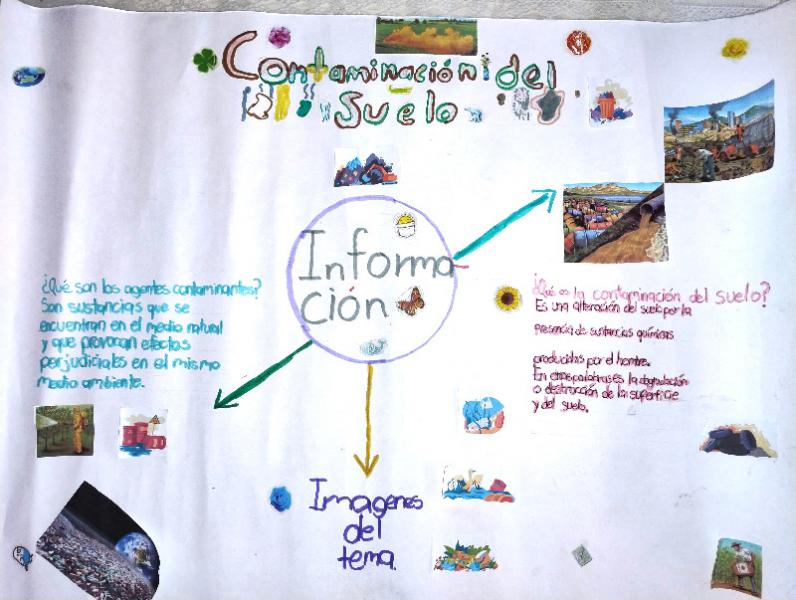 Contaminación del
Suelo
Informa
ción
¿Qué son los agentes contaminantes?
Son sustancias que se
encuentran en el medio natural
y que provocan efectos
perjudiciales en el mismo
medio ambiente.
¿Qué es la contaminación del suelo?
Es una alteración del suelo por la
presencia de sustancias químicas
producidas por el hombre.
En otras palabras es la degradación
o destrucción de la superficie
y del suelo.
Imagenes
del
tema.